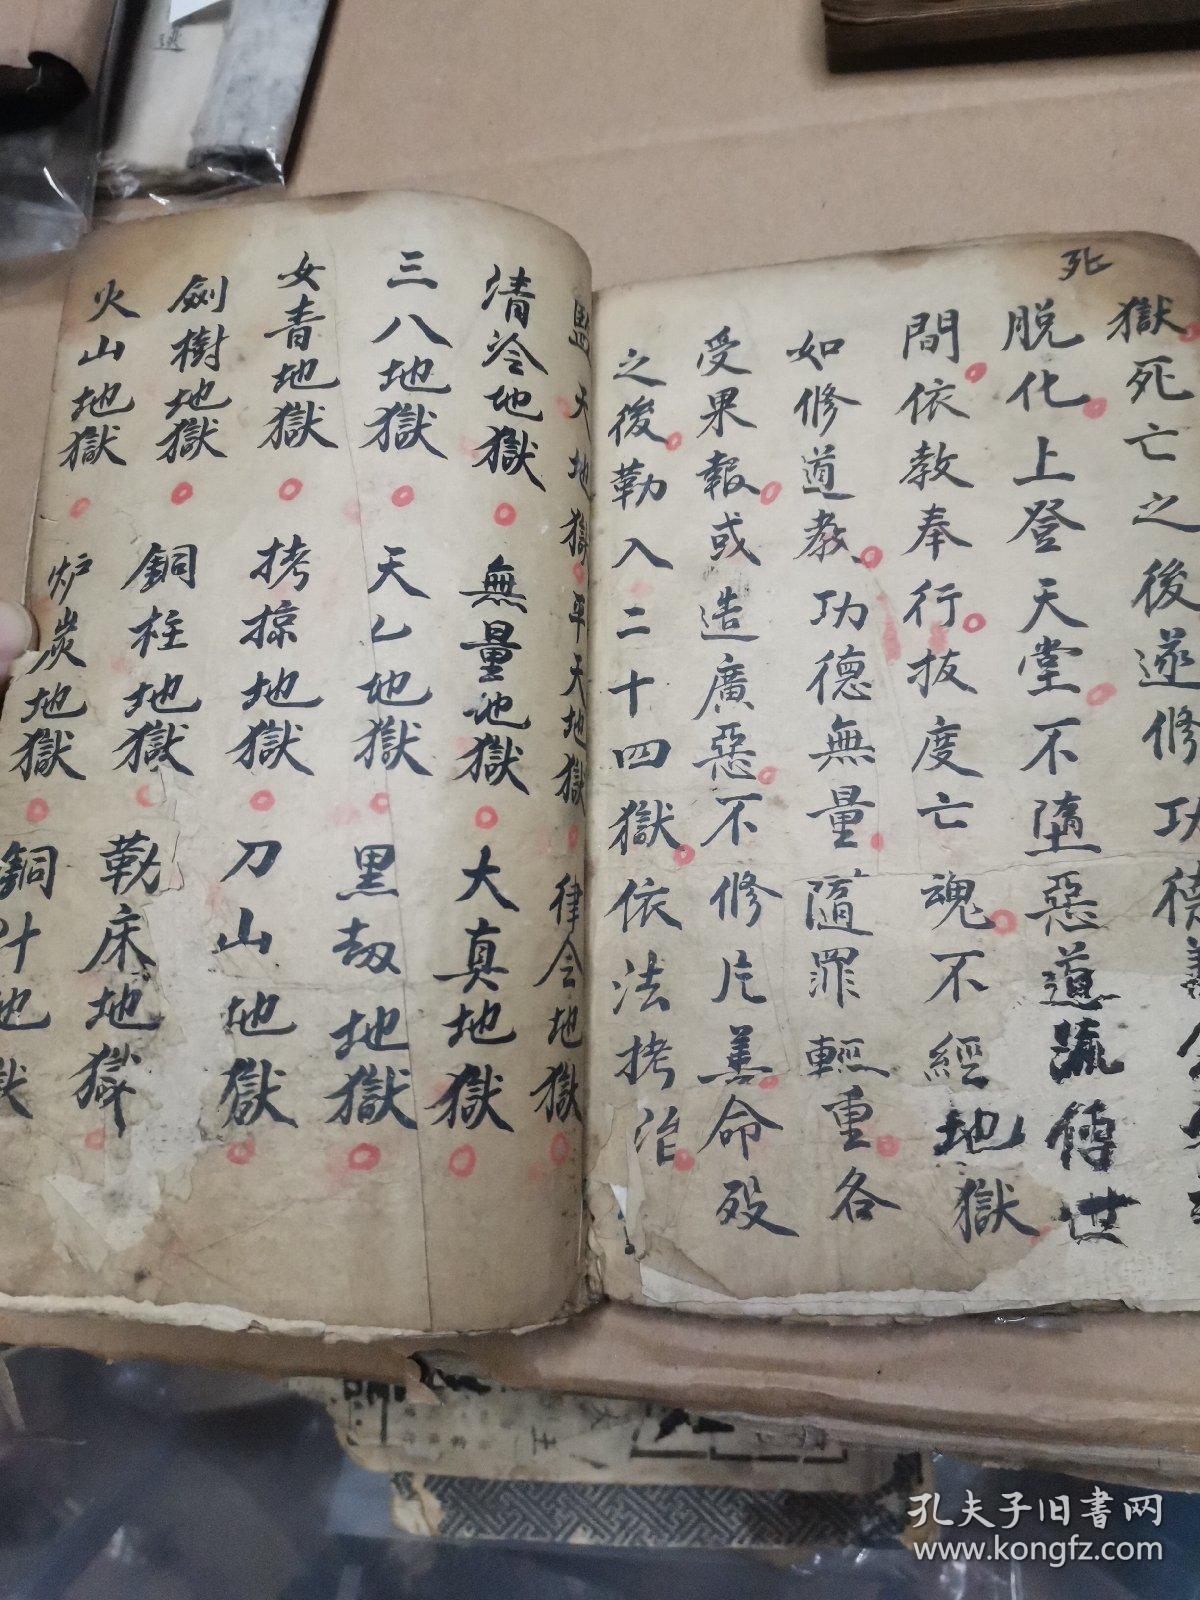 死
獄死亡之後遂修功德
脱化上登天堂不墮惡道流傳世
間依教奉行拔度亡魂不經地獄
如修道教功德無量隨罪輕重各
受果報或造廣惡不修片善命殁
之後勒入二十四獄依法拷治
監天地獄平天地獄律令地獄
清冷地獄無量地獄大真地獄
三八地獄天乚地獄黑劫地獄
女青地獄拷掠地獄刀山地獄
劍樹地獄銅柱地獄勒床地獄
火山地獄炉炭地獄銅汁地獄
孔夫子旧书网
www.kongfz.com